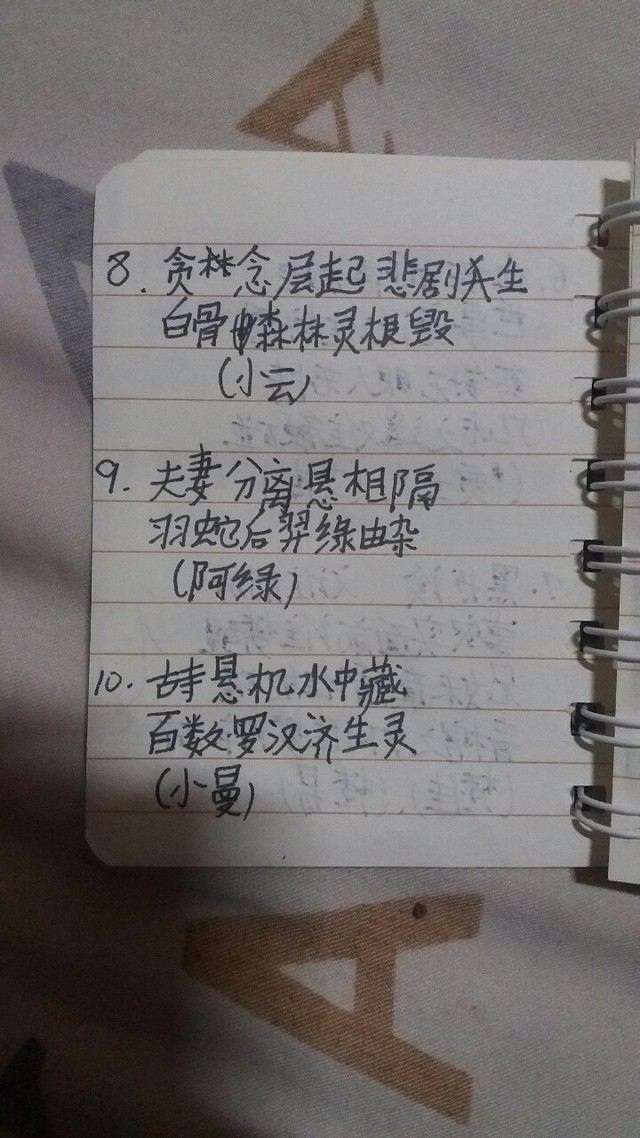 8. 贪林念层起悲剧生
白骨森林灵根毁
(小云)
9. 夫妻分离悬相隔
羽蛇后羿绿由杂
(阿绿)
10. 古寺悬机水中藏
百数罗汉济生灵
(小曼)